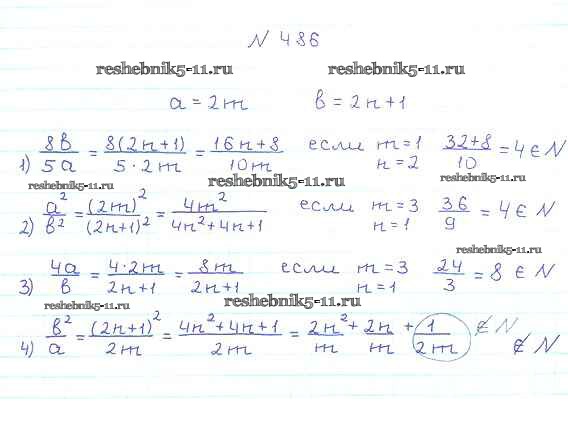 N 486
reshebnik5-11.ru reshebnik5-11.ru
a = 2m b = 2n+1
1) 8b/5a = 8(2n+1)/5·2m = 16n+8/10m если m=1 n=2 32+8/10 = 4 ∈ N
reshebnik5-11.ru reshebnik5-11.ru
2) a²/b² = (2m)²/(2n+1)² = 4m²/4n²+4n+1 если m=3 n=1 36/9 = 4 ∈ N
reshebnik5-11.ru
3) 4a/b = 4·2m/2n+1 = 8m/2n+1 если m=3 n=1 24/3 = 8 ∈ N
reshebnik5-11.ru reshebnik5-11.ru
4) b²/a = (2n+1)²/2m = 4n²+4n+1/2m = 2n²/m + 2n/m + 1/2m ∉ N ∉ N